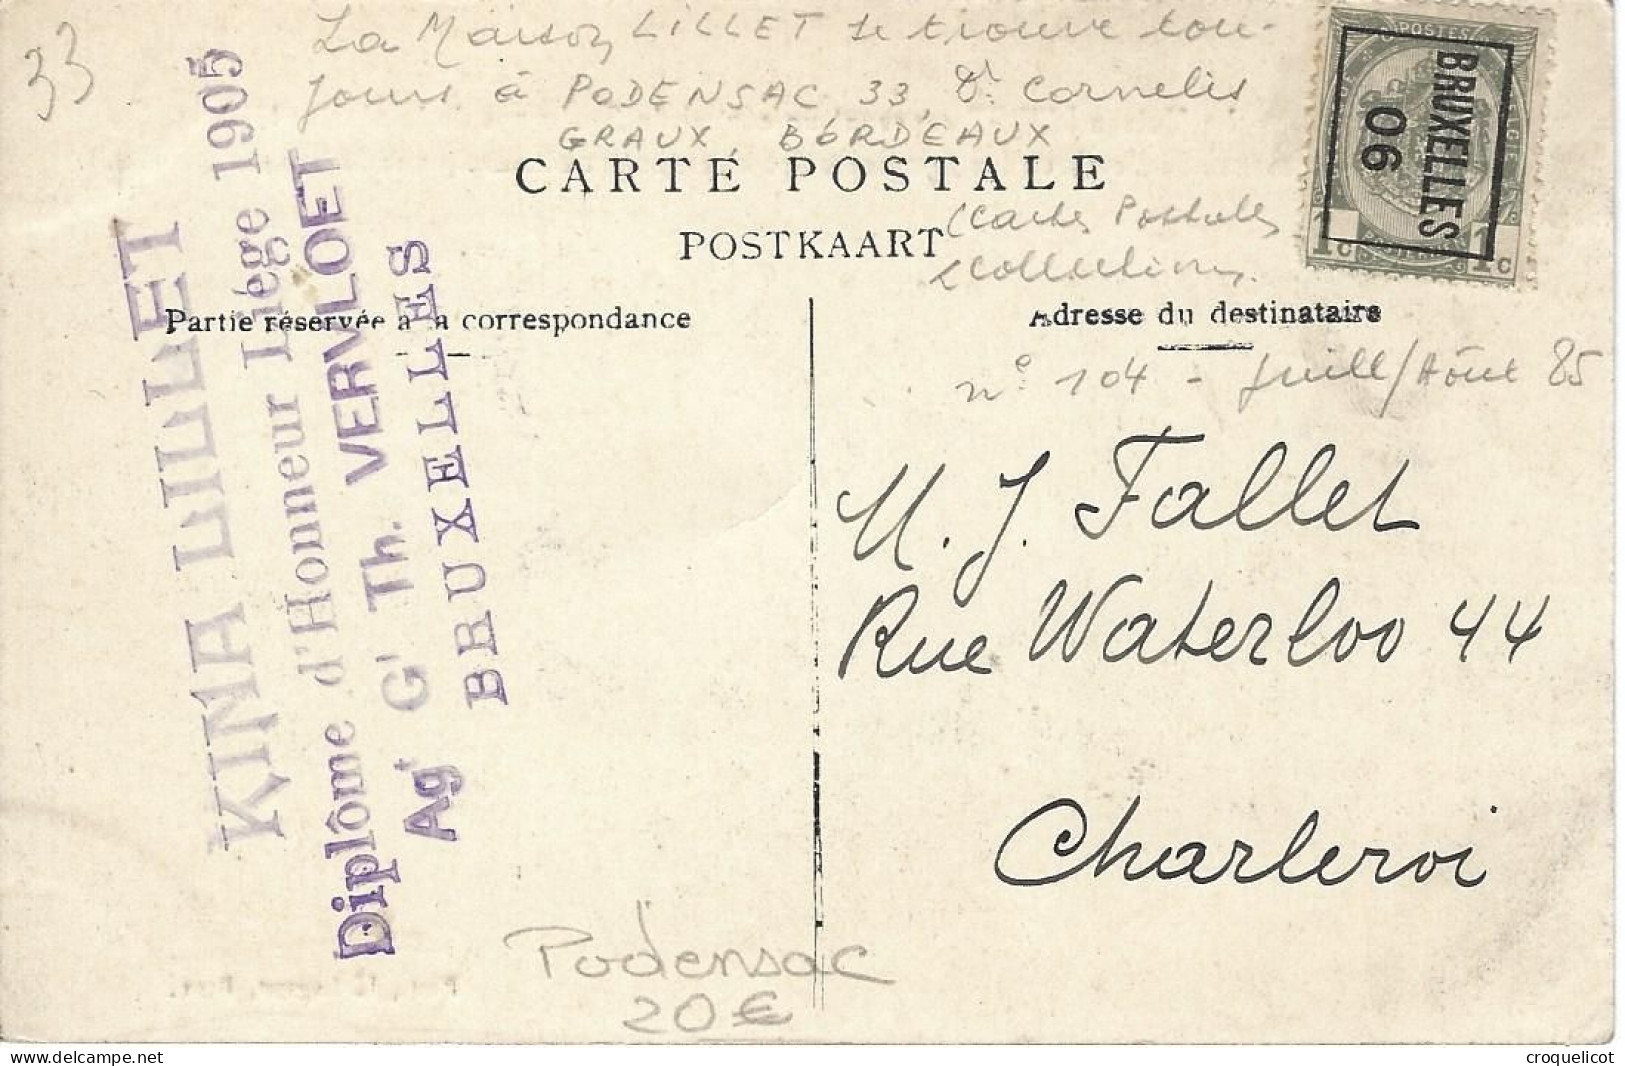 33
La Maison LILLET se trouve tou-
jours à PODENSAC 33, Cornelis
GRAUX, BORDEAUX
CARTE POSTALE
POSTKAART
(Cartes Postales
Collections.
Partie réservée à la correspondance
Adresse du destinataire
n° 104 - Juill/Août 85
M. J. Fallet
Rue Waterloo 44
Charleroi
KINA LILLET
Diplôme d'Honneur Liége 1905
Agt Gl Th. VERVLOET
BRUXELLES
POSTES
BRUXELLES
06
1c 1c
Podensac
20€
www.delcampe.net
croquelicot